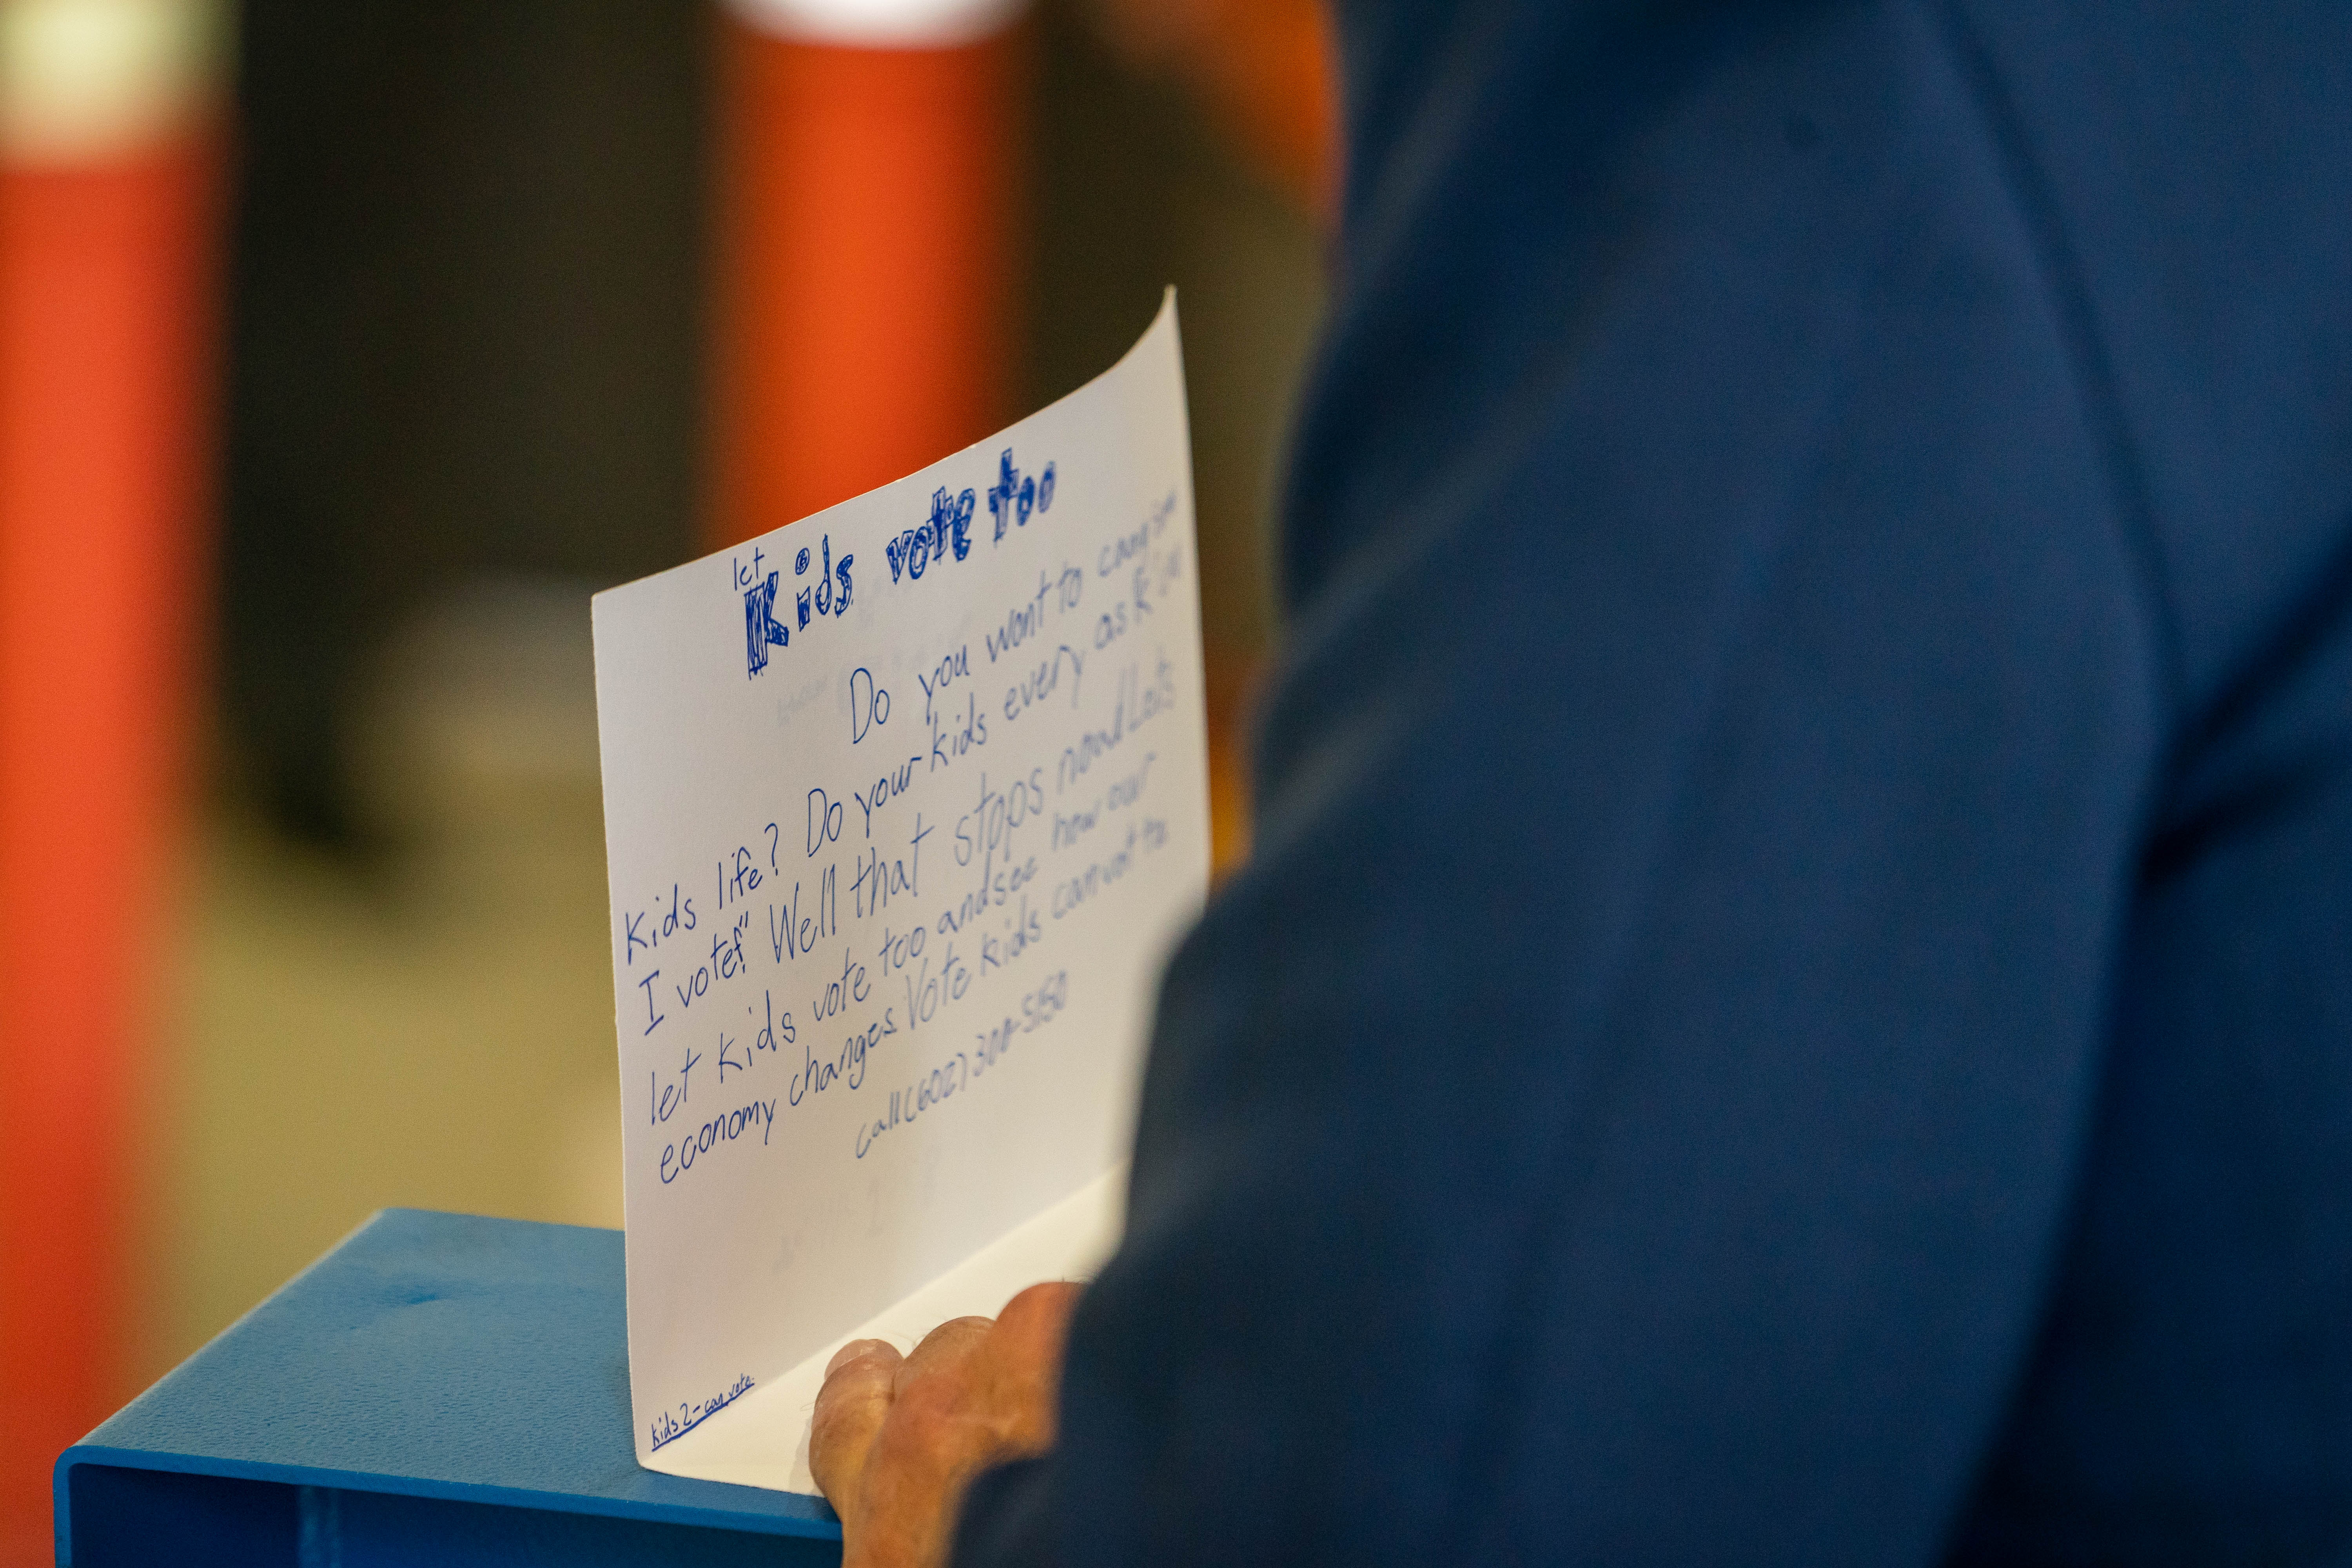 let
Kids vote too
Do you want to
Kids life? Do your kids every as
I vote?" Well that stops now! Lets
let kids vote too and see how our
economy changes. Vote kids can vote
call (602) 300-5150
kids 2-can vote.